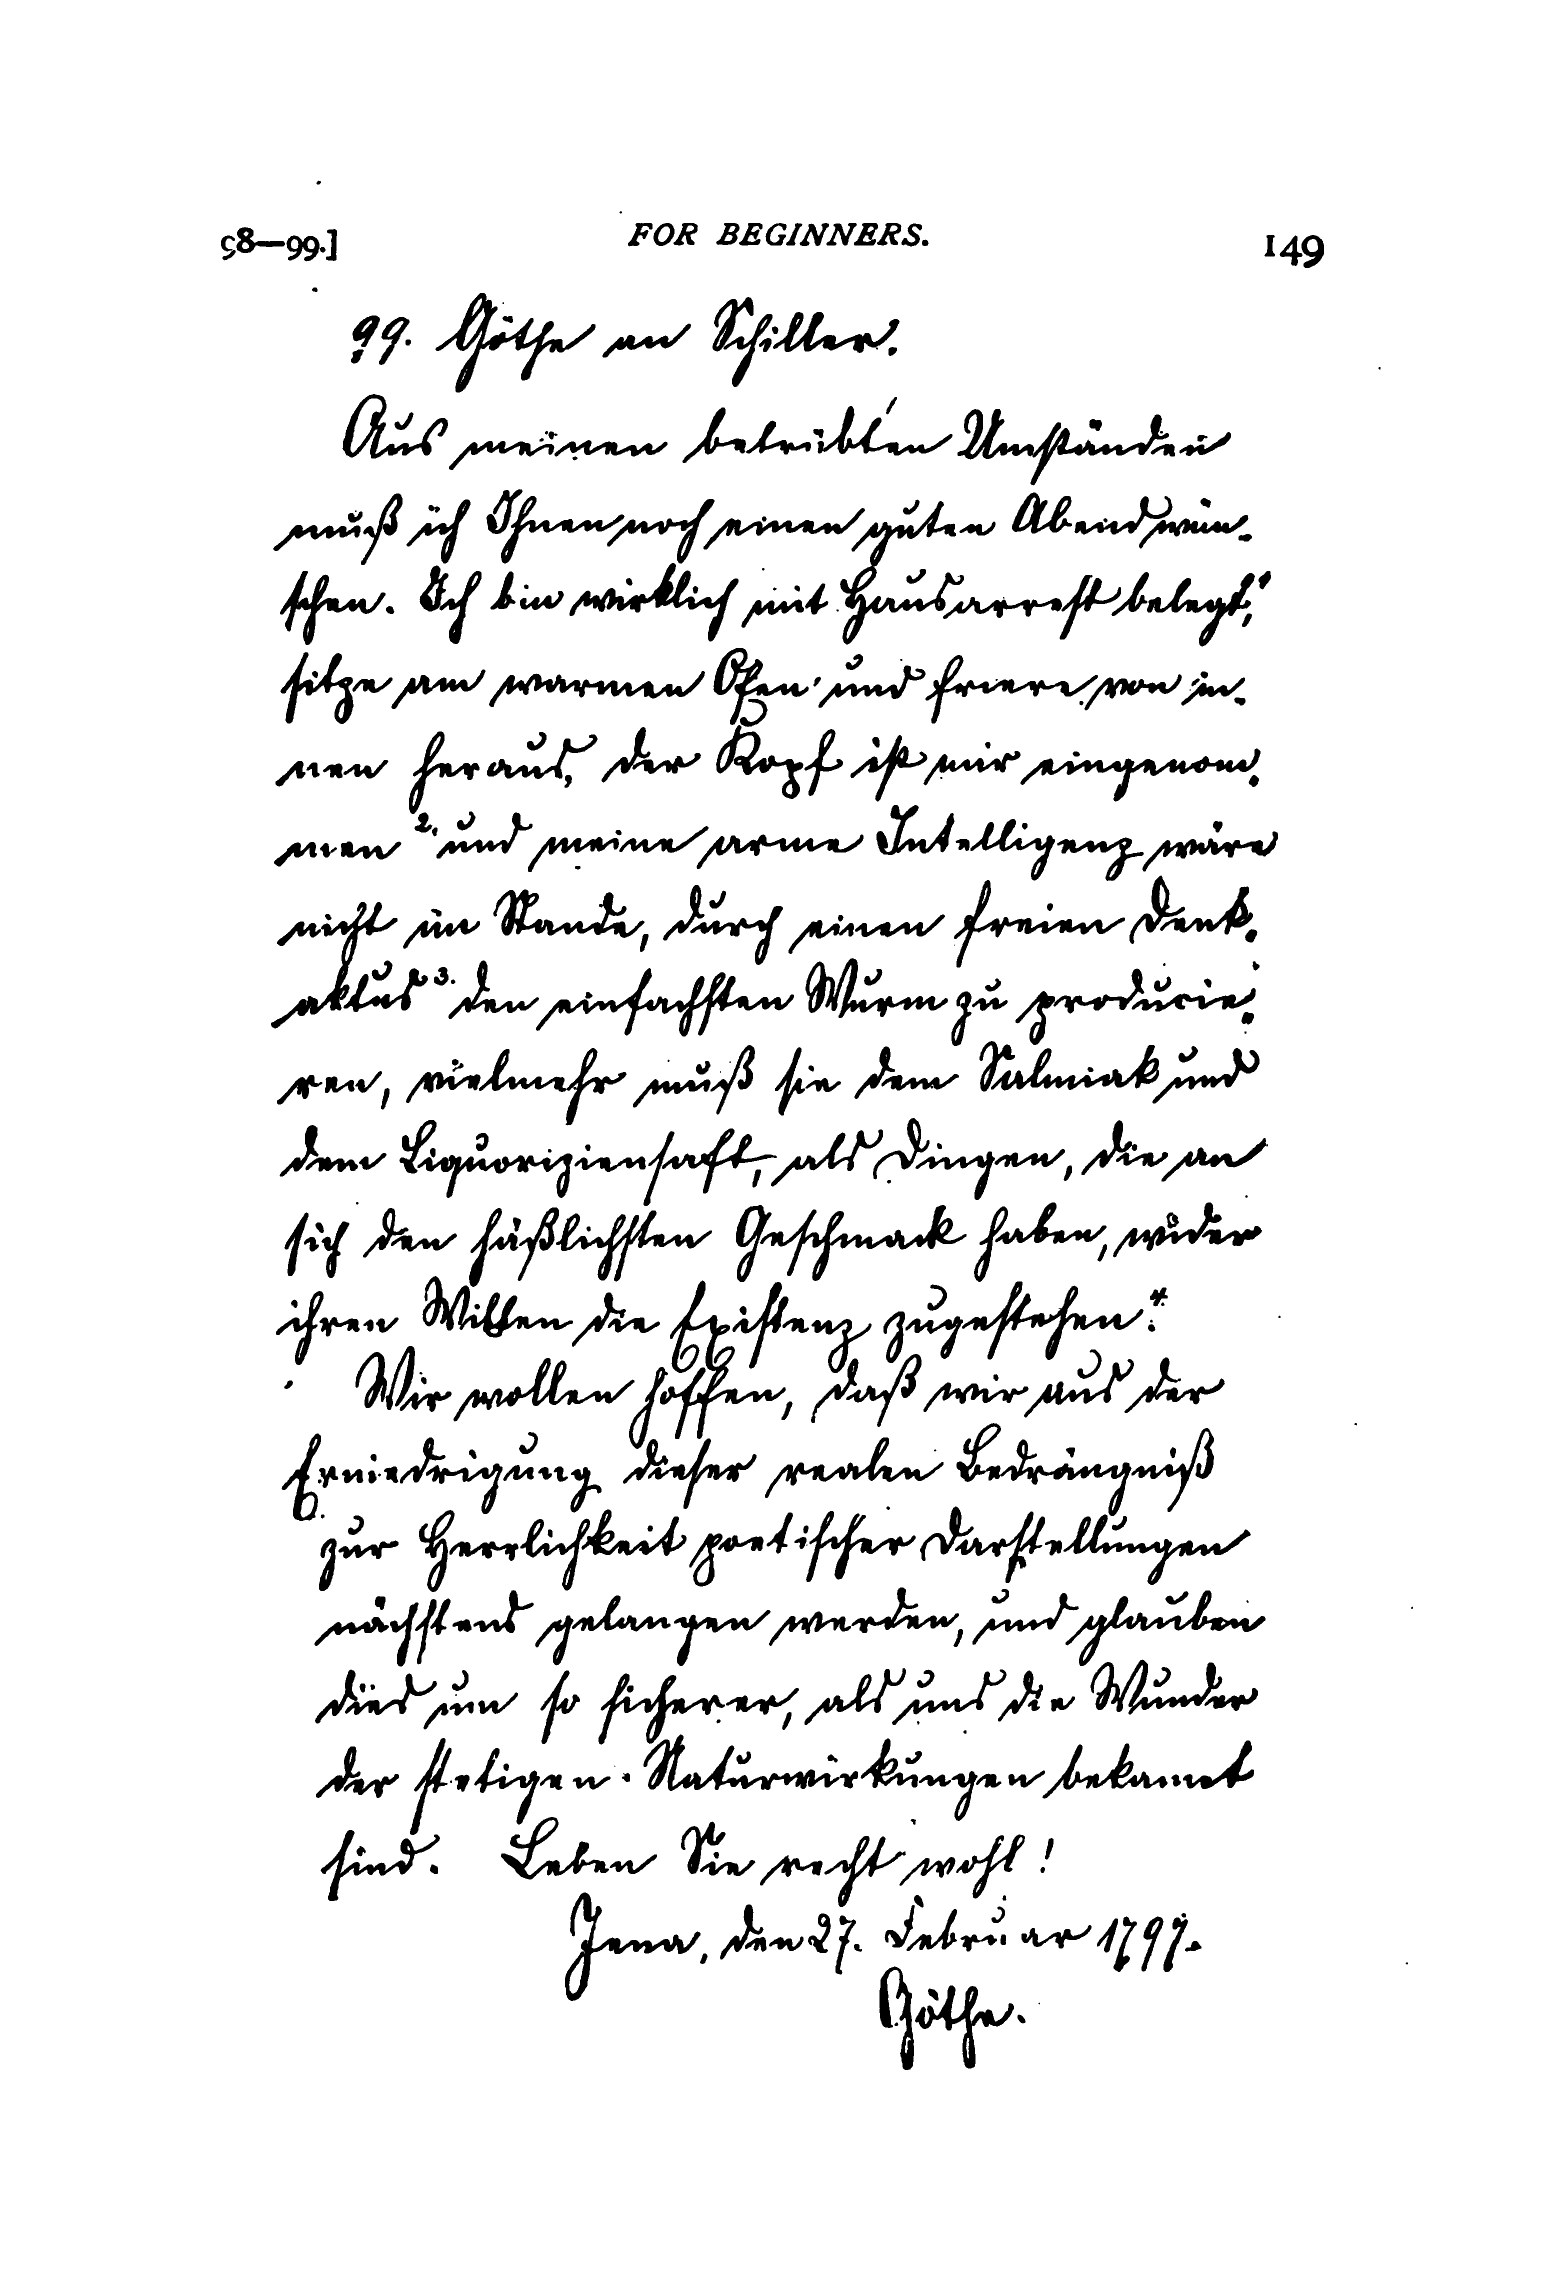 98—99.] FOR BEGINNERS. 149
99. Göthe an Schiller.
Aus meinen betrübten Umständen
muß ich Ihnen noch einen guten Abend wün-
schen. Ich bin wirklich mit Hausarrest belegt,¹
sitze am warmen Ofen und friere von in-
nen heraus, der Kopf ist mir eingenom-
men ². und meine arme Intelligenz wäre
nicht im Stande, durch einen freien Denk-
aktus ³. den einfachsten Wurm zu producie-
ren, vielmehr muß sie dem Salmiak und
dem Liquoriziensaft, als Dingen, die an
sich den häßlichsten Geschmack haben, wider
ihren Willen die Existenz zugestehen.⁴
Wir wollen hoffen, daß wir aus der
Erniedrigung dieser realen Bedrängniß
zur Herrlichkeit poetischer Darstellungen
nächstens gelangen werden, und glauben
dies um so sicherer, als uns die Wunder
der stetigen Naturwirkungen bekannt
sind. Leben Sie recht wohl!
Jena, den 27. Februar 1797.
Göthe.